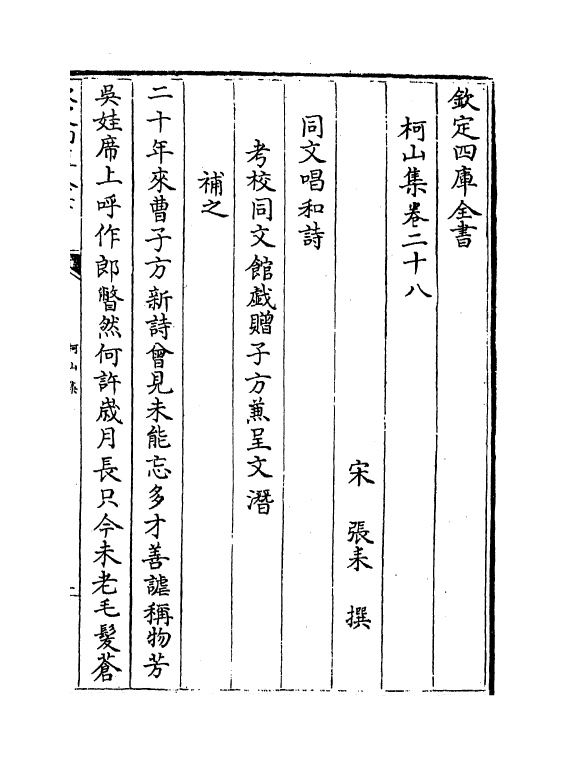 欽定四庫全書
柯山集卷二十八
宋 張耒 撰
同文唱和詩
考校同文館戯贈子方兼呈文潛
補之
二十年來曹子方新詩曾見未能忘多才善謔稱物芳
吳娃席上呼作郎瞥然何許歲月長只今未老毛髮蒼
柯山集